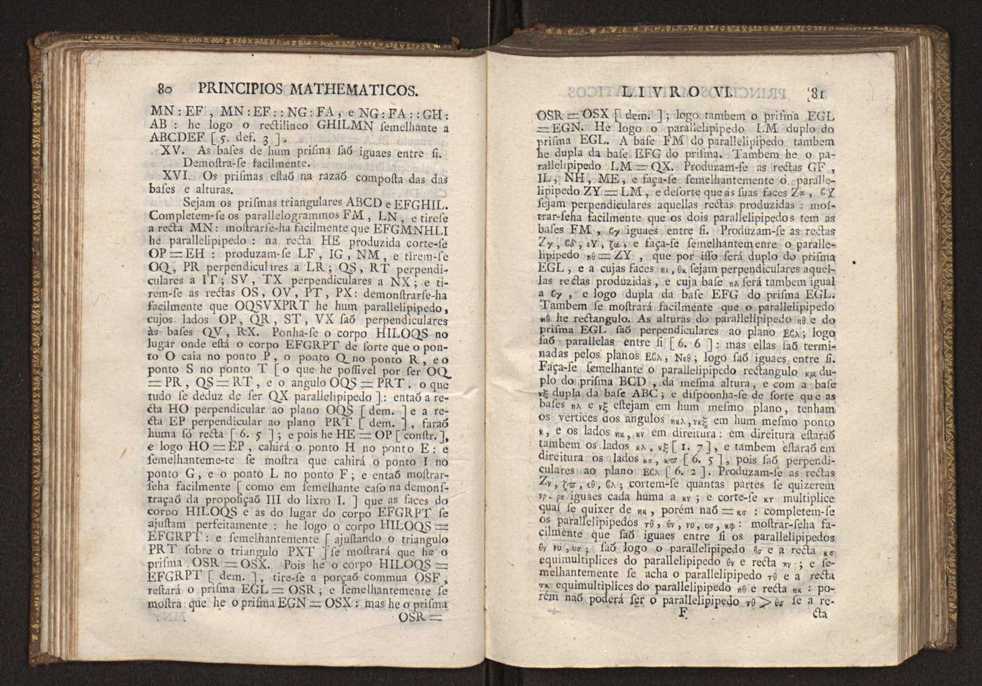 80 PRINCIPIOS MATHEMATICOS.
MN : EF , MN : EF : : NG : FA , e NG : FA : : GH :
AB : he logo o rectilineo GHILMN semelhante a
ABCDEF [ 5. def. 3 ] .
XV. As bases de hum prisma saõ iguaes entre si.
Demostra-se facilmente.
XVI. Os prismas estaõ na razaõ composta das das
bases e alturas.
Sejam os prismas triangulares ABCD e EFGHIL.
Completem-se os parallelogrammos FM , LN , e tirese
a recta MN : mostrarse-ha facilmente que EFGMNHLI
he parallelipipedo : na recta HE produzida corte-se
OP = EH : produzam-se LF , IG , NM , e tirem-se
OQ , PR perpendiculares a LR ; QS , RT perpendi-
culares a IT ; SV , TX perpendiculares a NX ; e ti-
rem-se as rectas OS , OV , PT , PX : demonstrarse-ha
facilmente que OQSVXPRT he hum parallelipipedo ,
cujos lados OP , QR , ST , VX saõ perpendiculares
às bases QV , RX. Ponha-se o corpo HILOQS no
lugar onde está o corpo EFGRPT de sorte que o pon-
to O caia no ponto P , o ponto Q no ponto R , e o
ponto S no ponto T [ o que he possivel por ser OQ
= PR , QS = RT , e o angulo OQS = PRT . o que
tudo se deduz de ser QX parallelipipedo ] : entaõ a re-
cta HO perpendicular ao plano OQS [ dem. ] e a re-
cta EP perpendicular ao plano PRT [ dem. ] , faraõ
huma só recta [ 6. 5 ] ; e pois he HE = OP [ constr. ] ,
e logo HO = EP , cahirá o ponto H no ponto E : e
semelhanteme-te se mostra que cahirá o ponto I no
ponto G , e o ponto L no ponto F ; e entaõ mostrar-
seha facilmente [ como em semelhante caso na demons-
traçaõ da proposiçaõ III do livro I. ] que as faces do
corpo HILOQS e as do lugar do corpo EFGRPT se
ajustam perfeitamente : he logo o corpo HILOQS =
EFGRPT : e semelhantemente [ ajustando o triangulo
PRT sobre o triangulo PXT ] se mostrará que he o
prisma OSR = OSX. Pois he o corpo HILOQS =
EFGRPT [ dem. ] , tire-se a porçaõ commua OSF ,
restará o prisma EGL = OSR ; e semelhantemente se
mostra que he o prisma EGN = OSX : mas he o prisma
OSR =
LIVRO VI. 81
OSR = OSX [ dem. ] ; logo tambem o prisma EGL
= EGN. He logo o parallelipipedo LM duplo do
prisma EGL. A base FM do parallelipipedo tambem
he dupla da base EFG do prisma. Tambem he o pa-
rallelipipedo LM = QX. Produzam-se as rectas GF ,
IL , NH , ME , e faça-se semelhantemente o paralle-
lipipedo ZY = LM , e desorte que as suas faces
sejam perpendiculares aquellas rectas produzidas : mos-
trar-seha facilmente que os dois parallelipipedos tem as
bases FM , iguaes entre si. Produzam-se as rectas
e faça-se semelhantemente o paralle-
lipipedo ηθ = ZY , que por isso será duplo do prisma
EGL , e a cujas faces sejam perpendiculares aquel-
las rectas produzidas , e cuja base ηλ será tambem igual
a , e logo dupla da base EFG do prisma EGL.
Tambem se mostrará facilmente que o parallelipipedo
ηθ he rectangulo. As alturas do parallelipipedo ηθ e do
prisma EGL saõ perpendiculares ao plano ; logo
saõ parallelas entre si [ 6. 6 ] : mas ellas saõ termi-
nadas pelos planos ; logo saõ iguaes entre si.
Faça-se semelhante o parallelipipedo rectangulo κμ du-
plo do prisma BCD , da mesma altura , e com a base
νξ dupla da base ABC ; e disponha-se de sorte que as
bases ηλ e νξ estejam em hum mesmo plano , tenham
os vertices dos angulos em hum mesmo ponto
κ , e os lados ηκ , κν em direitura : em direitura estaraõ
tambem os lados [ 1. 7 ] , e tambem estaraõ em
direitura os lados [ 6. 5 ] , pois saõ perpendi-
culares ao plano [ 6. 2 ] . Produzam-se as rectas
cortem-se quantas partes se quizerem
iguaes cada huma a κν ; e corte-se κτ multiplice
qual se quizer de ηκ , porém naõ = κσ : completem-se
os parallelipipedos mostrar-seha fa-
cilmente que saõ iguaes entre si os parallelipipedos
saõ logo o parallelipipedo θσ e a recta κσ
equimultiplices do parallelipipedo θν e recta κν ; e se-
melhantemente se acha o parallelipipedo τθ e a recta
τκ equimultiplices do parallelipipedo ηθ e recta ηκ : po-
rém naõ poderá ser o parallelipipedo τθ > θσ se a re-
F cta